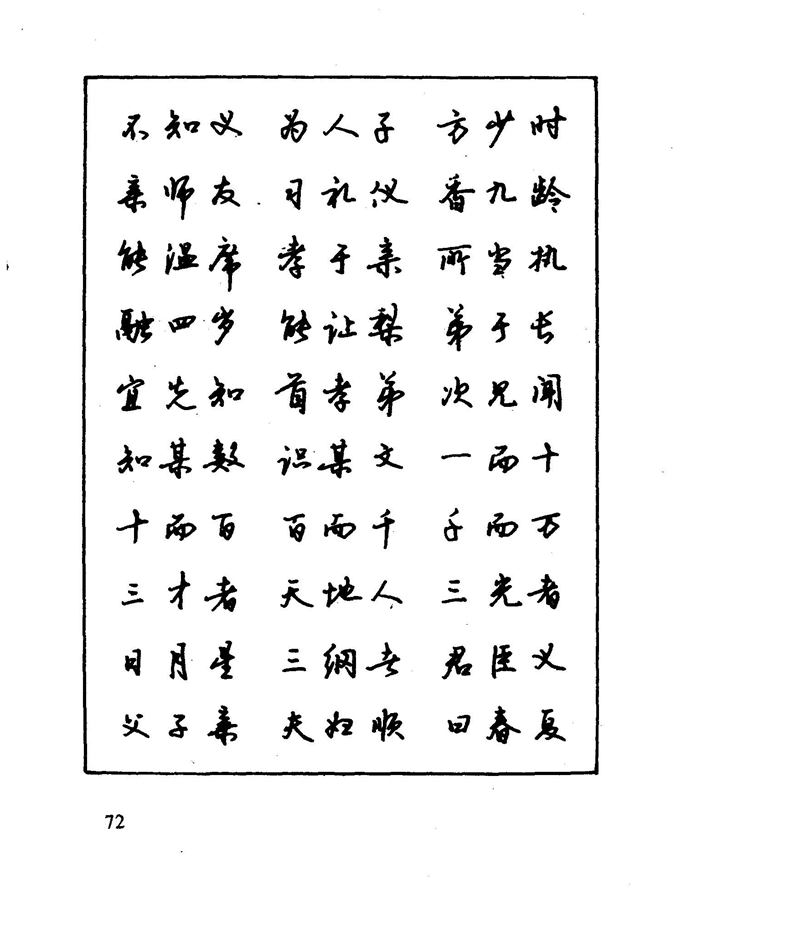 不知义 为人子 方少时
亲师友 习礼仪 香九龄
能温席 孝于亲 所当执
融四岁 能让梨 弟于长
宜先知 首孝弟 次见闻
知某数 识某文 一而十
十而百 百而千 千而万
三才者 天地人 三光者
日月星 三纲者 君臣义
父子亲 夫妇顺 曰春夏
72